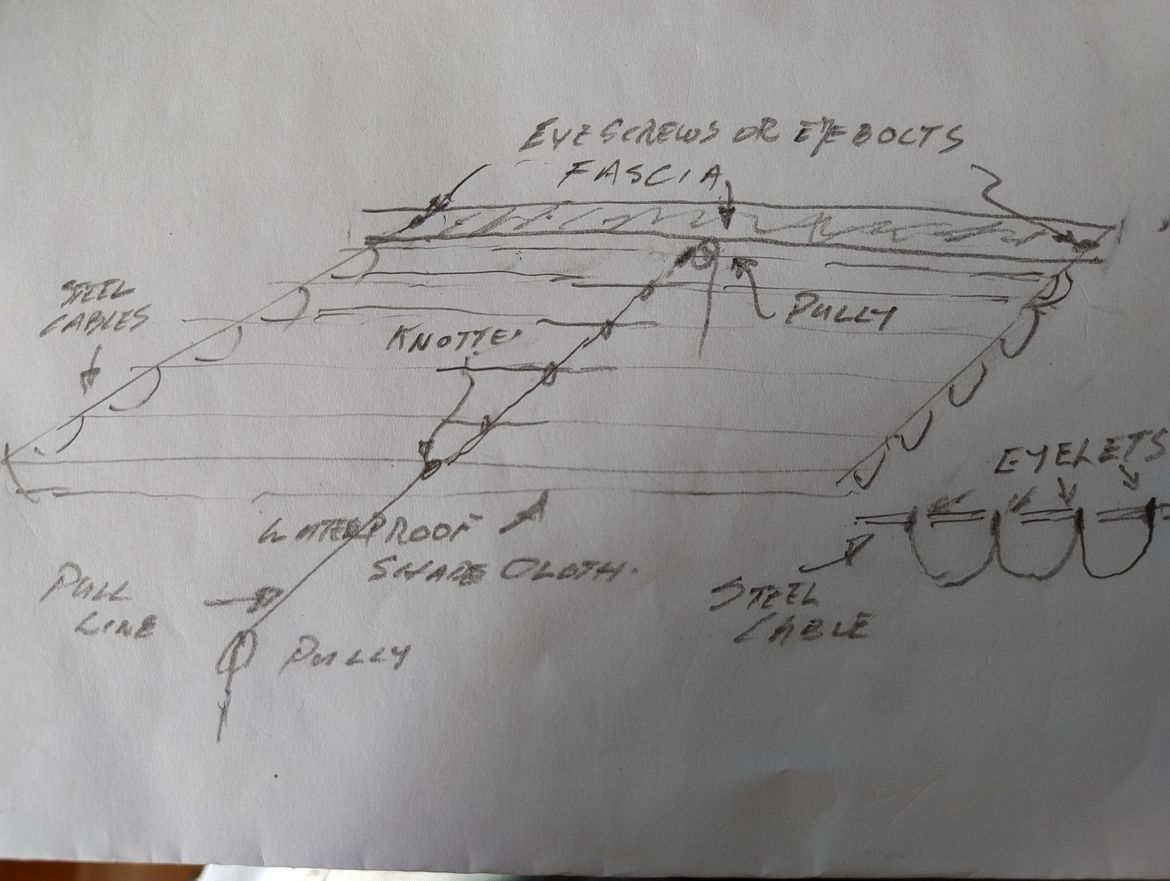 EYE SCREWS OR EYE BOLTS
FASCIA
STEEL
CABLES
KNOTTED
PULLY
EYELETS
WATERPROOF
SHADE CLOTH.
PULL
LINE
STEEL
CABLE
PULLY